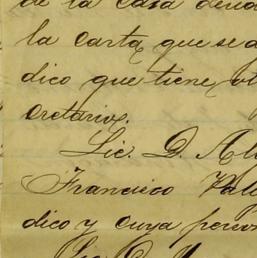 de la casa
la carta, que se a
dico que tiene ot
cretarios.
Lic. D. Al
Francisco Pal
dico y cuya perso
Lic. D.